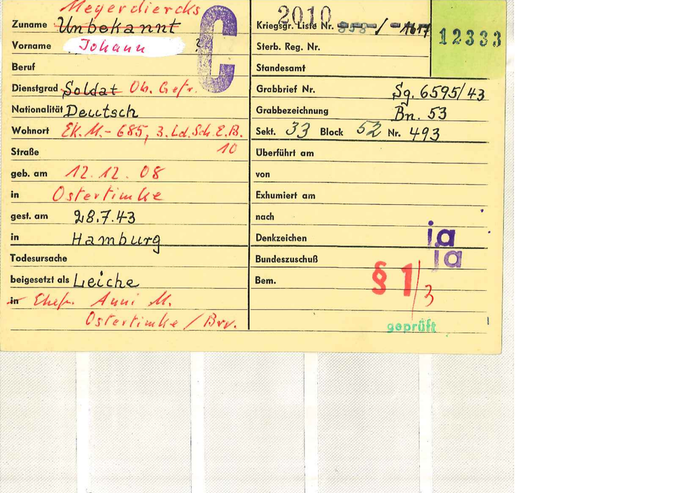 Meyerdiercks
Zuname Unbekannt
Vorname Johann
Beruf
Dienstgrad Soldat Ob. Gefr.
Nationalität Deutsch
Wohnort EK. M. - 685, 3. Ld. Sch. E. B.
Straße 10
geb. am 12.12.08
in Ostertimke
gest. am 28.7.43
in Hamburg
Todesursache
beigesetzt als Leiche
in Ehefr. Anni M.
Ostertimke / Brv.
C
2010
Kriegsgr. Liste Nr. / -1617
Sterb. Reg. Nr.
Standesamt
12333
Grabbrief Nr. Sg. 6595/43
Grabbezeichnung Bn. 53
Sekt. 33 Block 52 Nr. 493
Überführt am
von
Exhumiert am
nach
Denkzeichen ja
Bundeszuschuß ja
Bem. § 1/3
geprüft